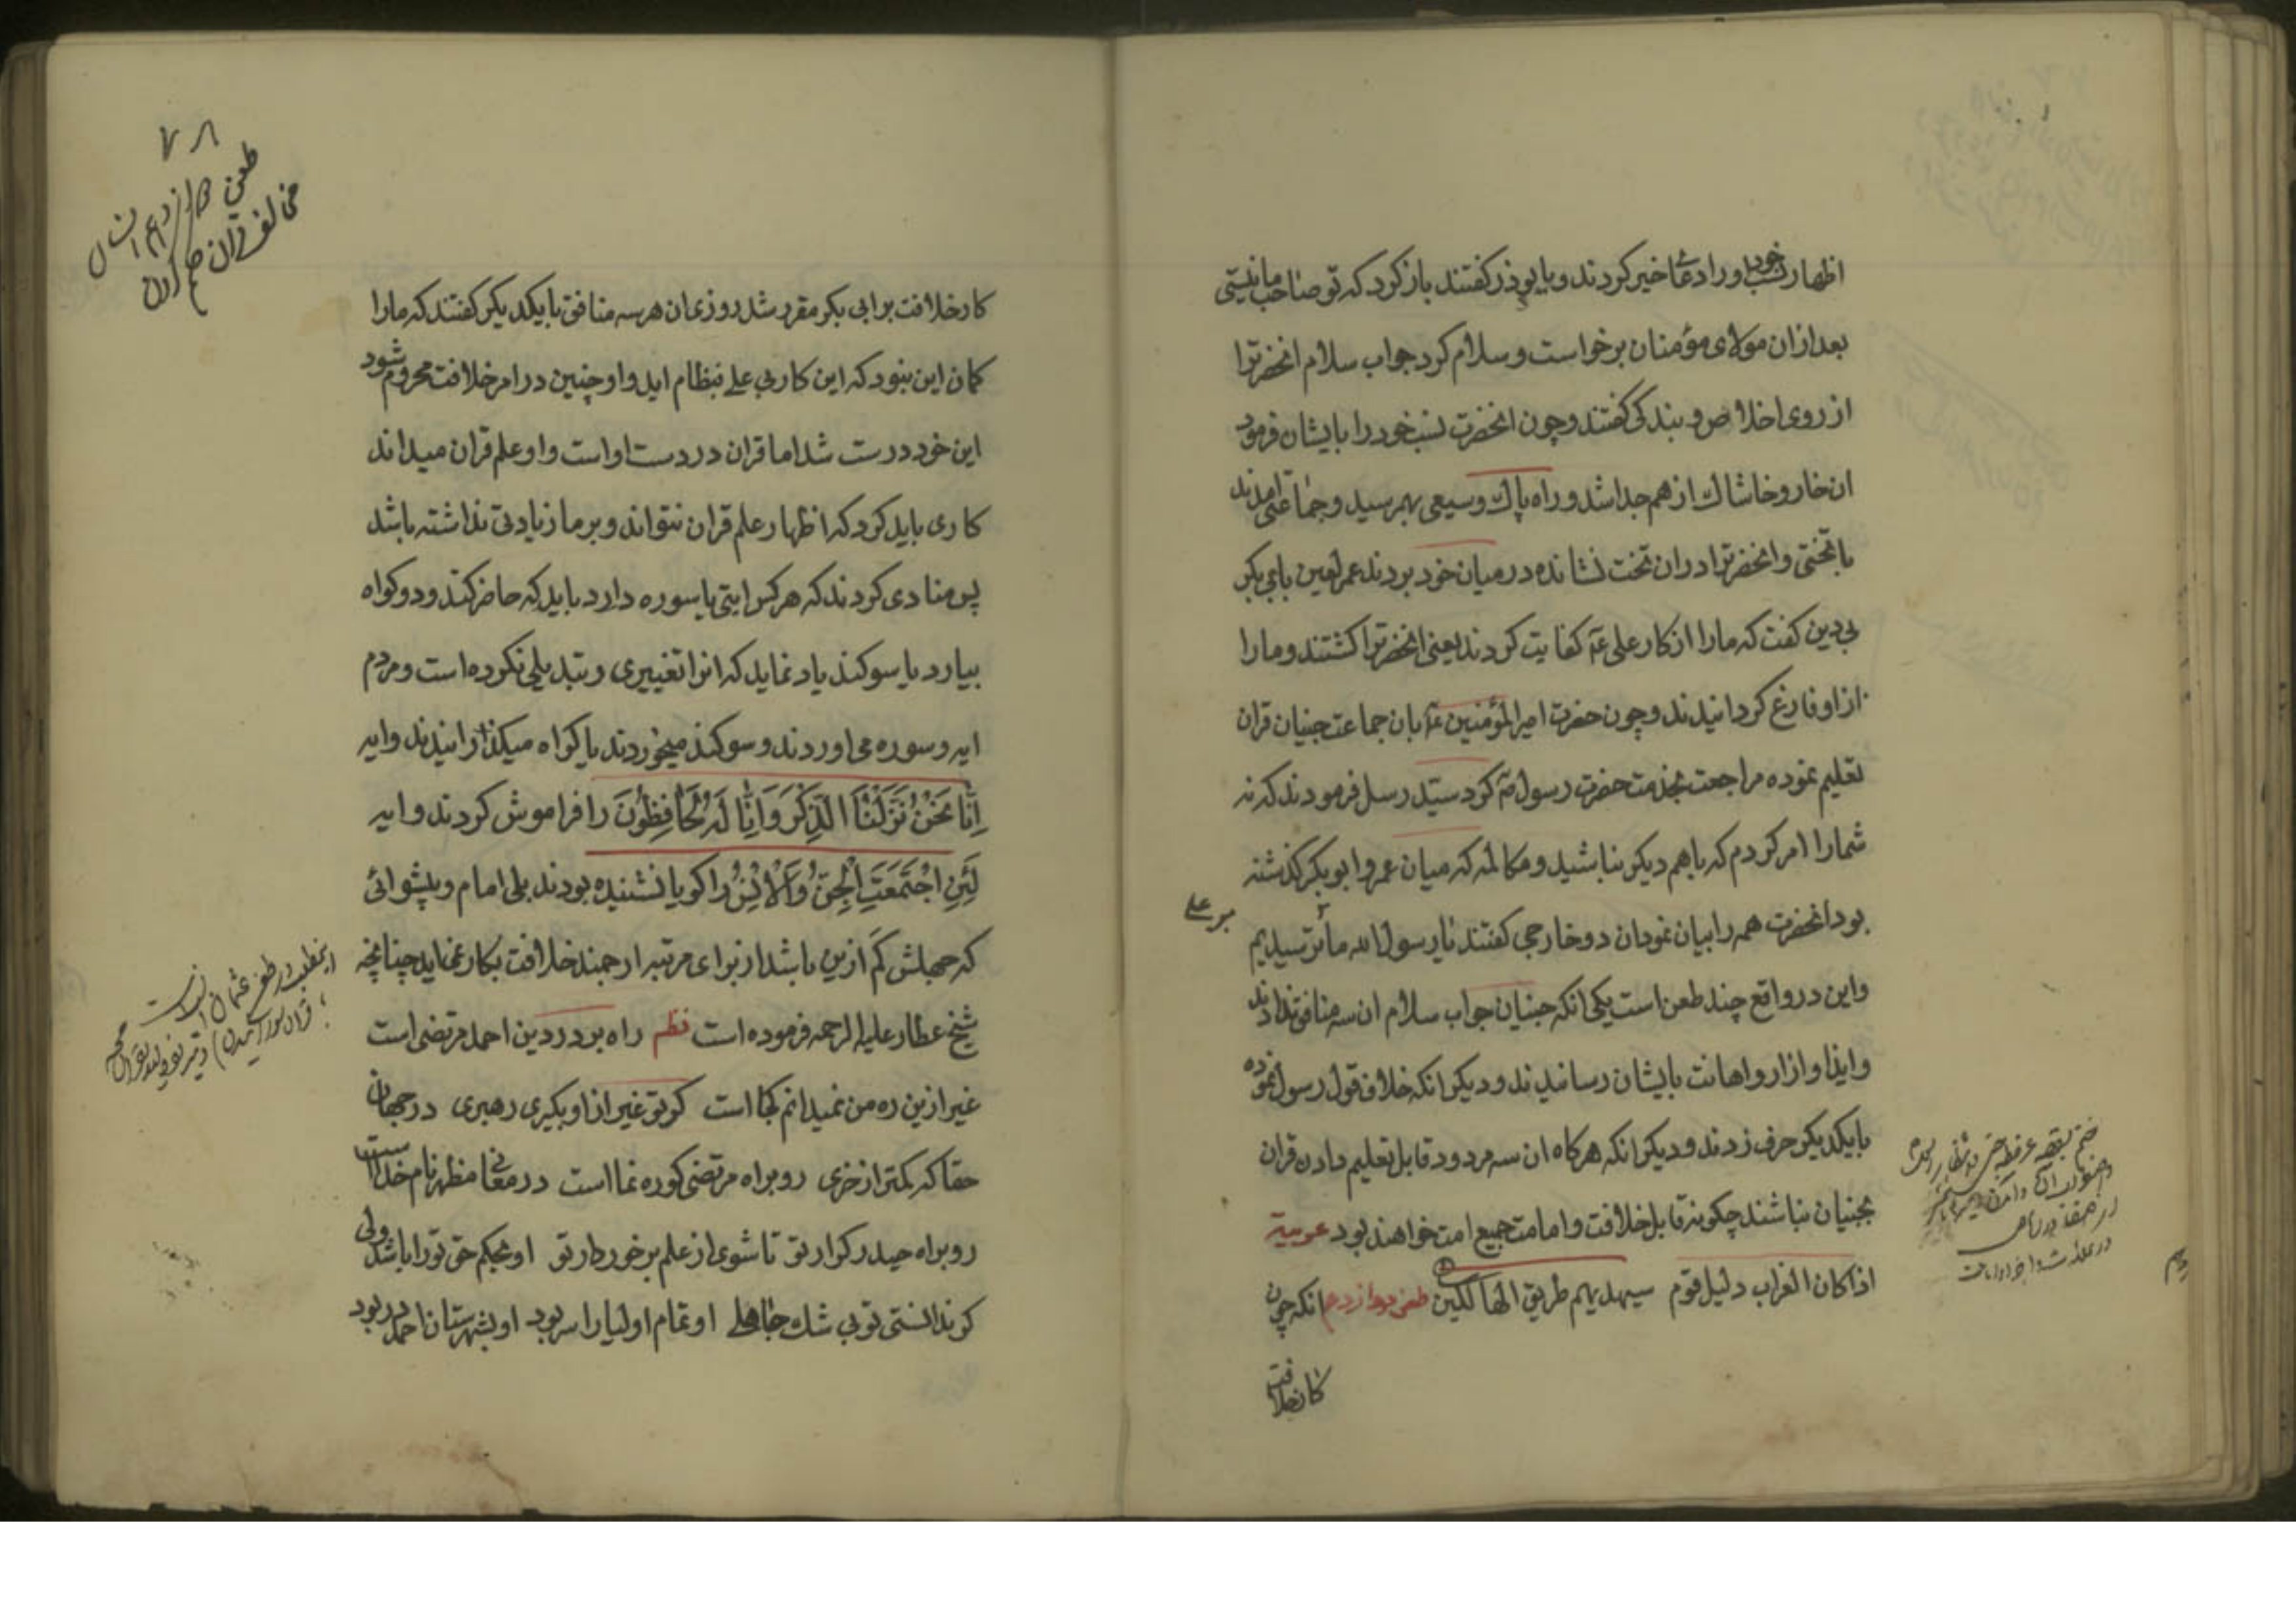 اظهار نسب خود او را دعای خیر کردند و با بوذر گفتند باز کرد که تو صاحب ما نیستی
بعد از ان مولای مؤمنان برخواست و سلام کرد جواب سلام انحضرترا
از روی اخلاص و بندگی گفتند و چون انحضرت نسب خود را بایشان فرمود
ان خار و خاشاک از هم جدا شد و راه پاک وسیعی بهم رسید و جماعتی امدند
با تختی و انحضرترا در ان تخت نشانده در میان خود بردند عمر لعین بابی بکر
بی دین کفت که ما را از کار علی کفایت کردند یعنی انحضرترا کشتند و ما را
از او فارغ کردانیدند و چون حضرت امیر المؤمنین بان جماعت جنیان قران
تعلیم نموده مراجعت بخدمت حضرت رسول کرد سید رسل فرمودند که نه
شما را امر کردم که با هم دیکر بباشید و مکالمه که میان عمر و ابو بکر کذشته
بود انحضرت همه را بیان نمود ان دو خارجی کفتند یا رسول الله ما ترسیدیم
بر علی
و این در واقع چند طعن است یکی انکه جنیان جواب سلام ان سه منافق ندادند
و ایذا و ازار و اهانت بایشان رسانیدند و دیکر انکه خلاف قول رسول نموده
با یکدیکر حرف زدند و دیکر انکه هرکاه ان سه مردود قابل تعلیم دادن قران
بجنیان نباشند چکونه قابل خلافت و امامت جمیع امت خواهند بود عربیة
اذا کان الغراب دلیل قوم سیهدیهم طریق الهالکین طعن دوازدهم انکه چون
کار خلافت
۷۸
طعن دوازدهم
مخالف قران
کار خلافت بر ابی بکر مقرر شد روزی ان هر سه منافق با یکدیکر کفتند که ما را
کمان این نبود که این کار بی علی بنظام اید و او چنین در امر خلافت محروم شود
این خود درست شد اما قران در دست او است و او علم قران میداند
کاری باید کرد که اظهار علم قران نتواند و بر ما زیادتی نداشته باشد
پس منادی کردند که هر کس ایتی یا سوره دارد باید که حاضر کند و دو کواه
بیارد یا سوکند یاد نماید که انرا تغییری و تبدیلی نکرده است و مردم
ایه و سوره می اوردند و سوکند میخوردند یا کواه میکذرانیدند و ایه
اِنَّا نَحْنُ نَزَّلْنَا الذِّكْرَ وَاِنَّا لَهُ لَحَافِظُونَ را فراموش کردند و ایه
لَئِنِ اجْتَمَعَتِ الْجِنُّ وَالْاِنْسُ را کویا نشنیده بودند بلی امام و پیشوائی
که جهلش کم ازین باشد از برای مرتبه ارجمند خلافت بکار نماید چنانچه
شیخ عطار علیه الرحمه فرموده است نظم راه برد در دین احمد مرتضی است
غیر ازین ره من نمیدانم کجا است کر تو غیر از او بکیری رهبری در جهان
حقا که کمتر از خری رو براه مرتضی کو ره نما است در معانی مظهر نام خداست
رو براه حیدر کرار تو تا شوی از علم برخوردار تو او بحکم حق تو را باشد ولی
کر ندانستی تو بی شک جاهلی او تمام اولیا را سر بود او بشهرستان احمد در بود